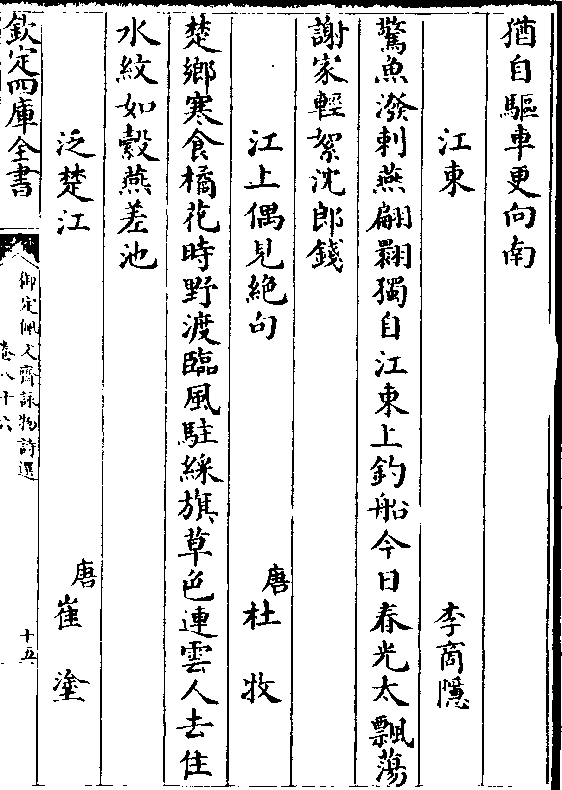 猶自驅車更向南
江東　李商隱
驚魚潑剌燕翩翾獨自江東上釣船今日春光太飄蕩
謝家輕絮沈郎錢
江上偶見絶句　唐杜牧
楚鄉寒食橘花時野渡臨風駐綵旗草色連雲人去住
水紋如縠燕差池
泛楚江　唐崔塗
欽定四庫全書
御定佩文齋詠物詩選
卷八十六
十五